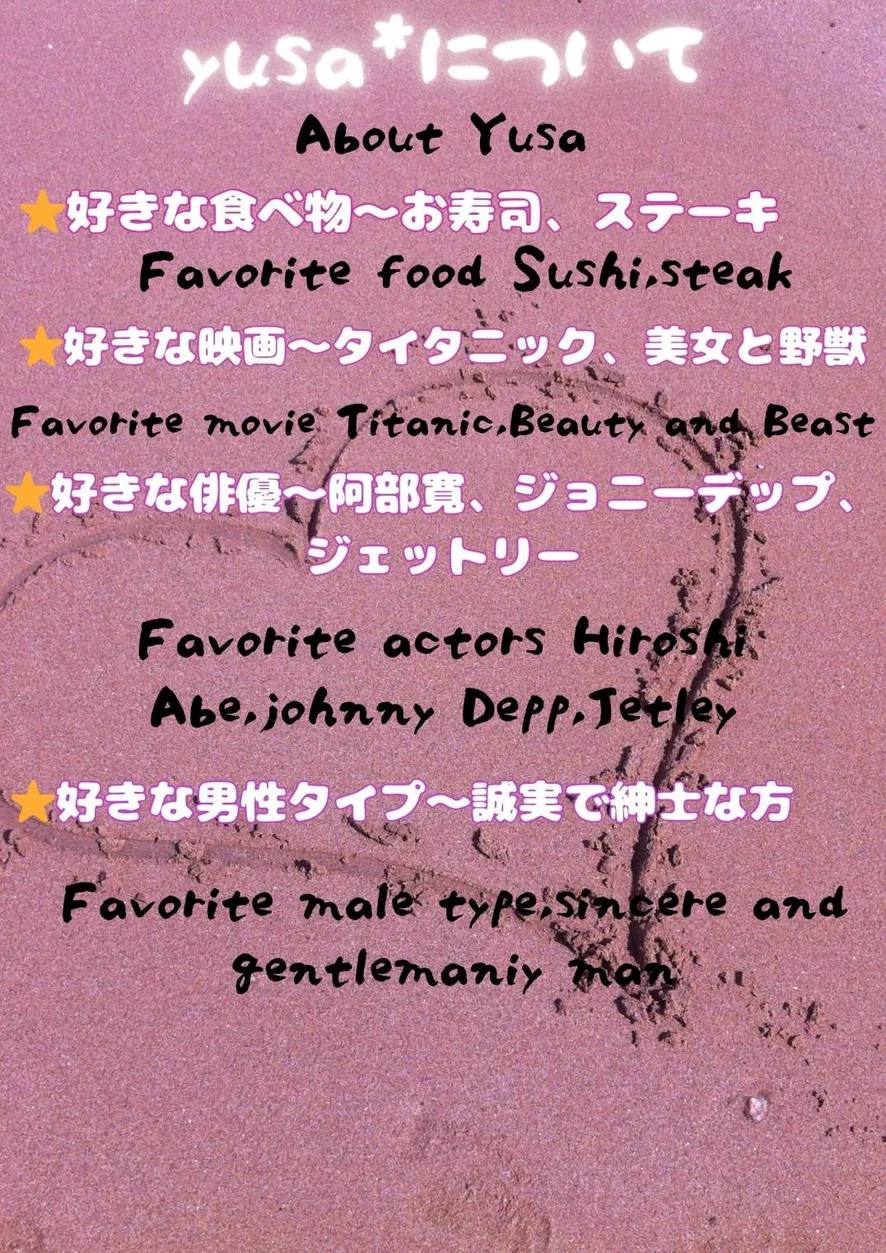 yusa*について
About Yusa
⭐好きな食べ物～お寿司、ステーキ
Favorite food Sushi,steak
⭐好きな映画～タイタニック、美女と野獣
Favorite movie Titanic,Beauty and Beast
⭐好きな俳優～阿部寛、ジョニーデップ、
ジェットリー
Favorite actors Hiroshi
Abe,johnny Depp,Jetley
⭐好きな男性タイプ～誠実で紳士な方
Favorite male type,sincere and
gentlemaniy man